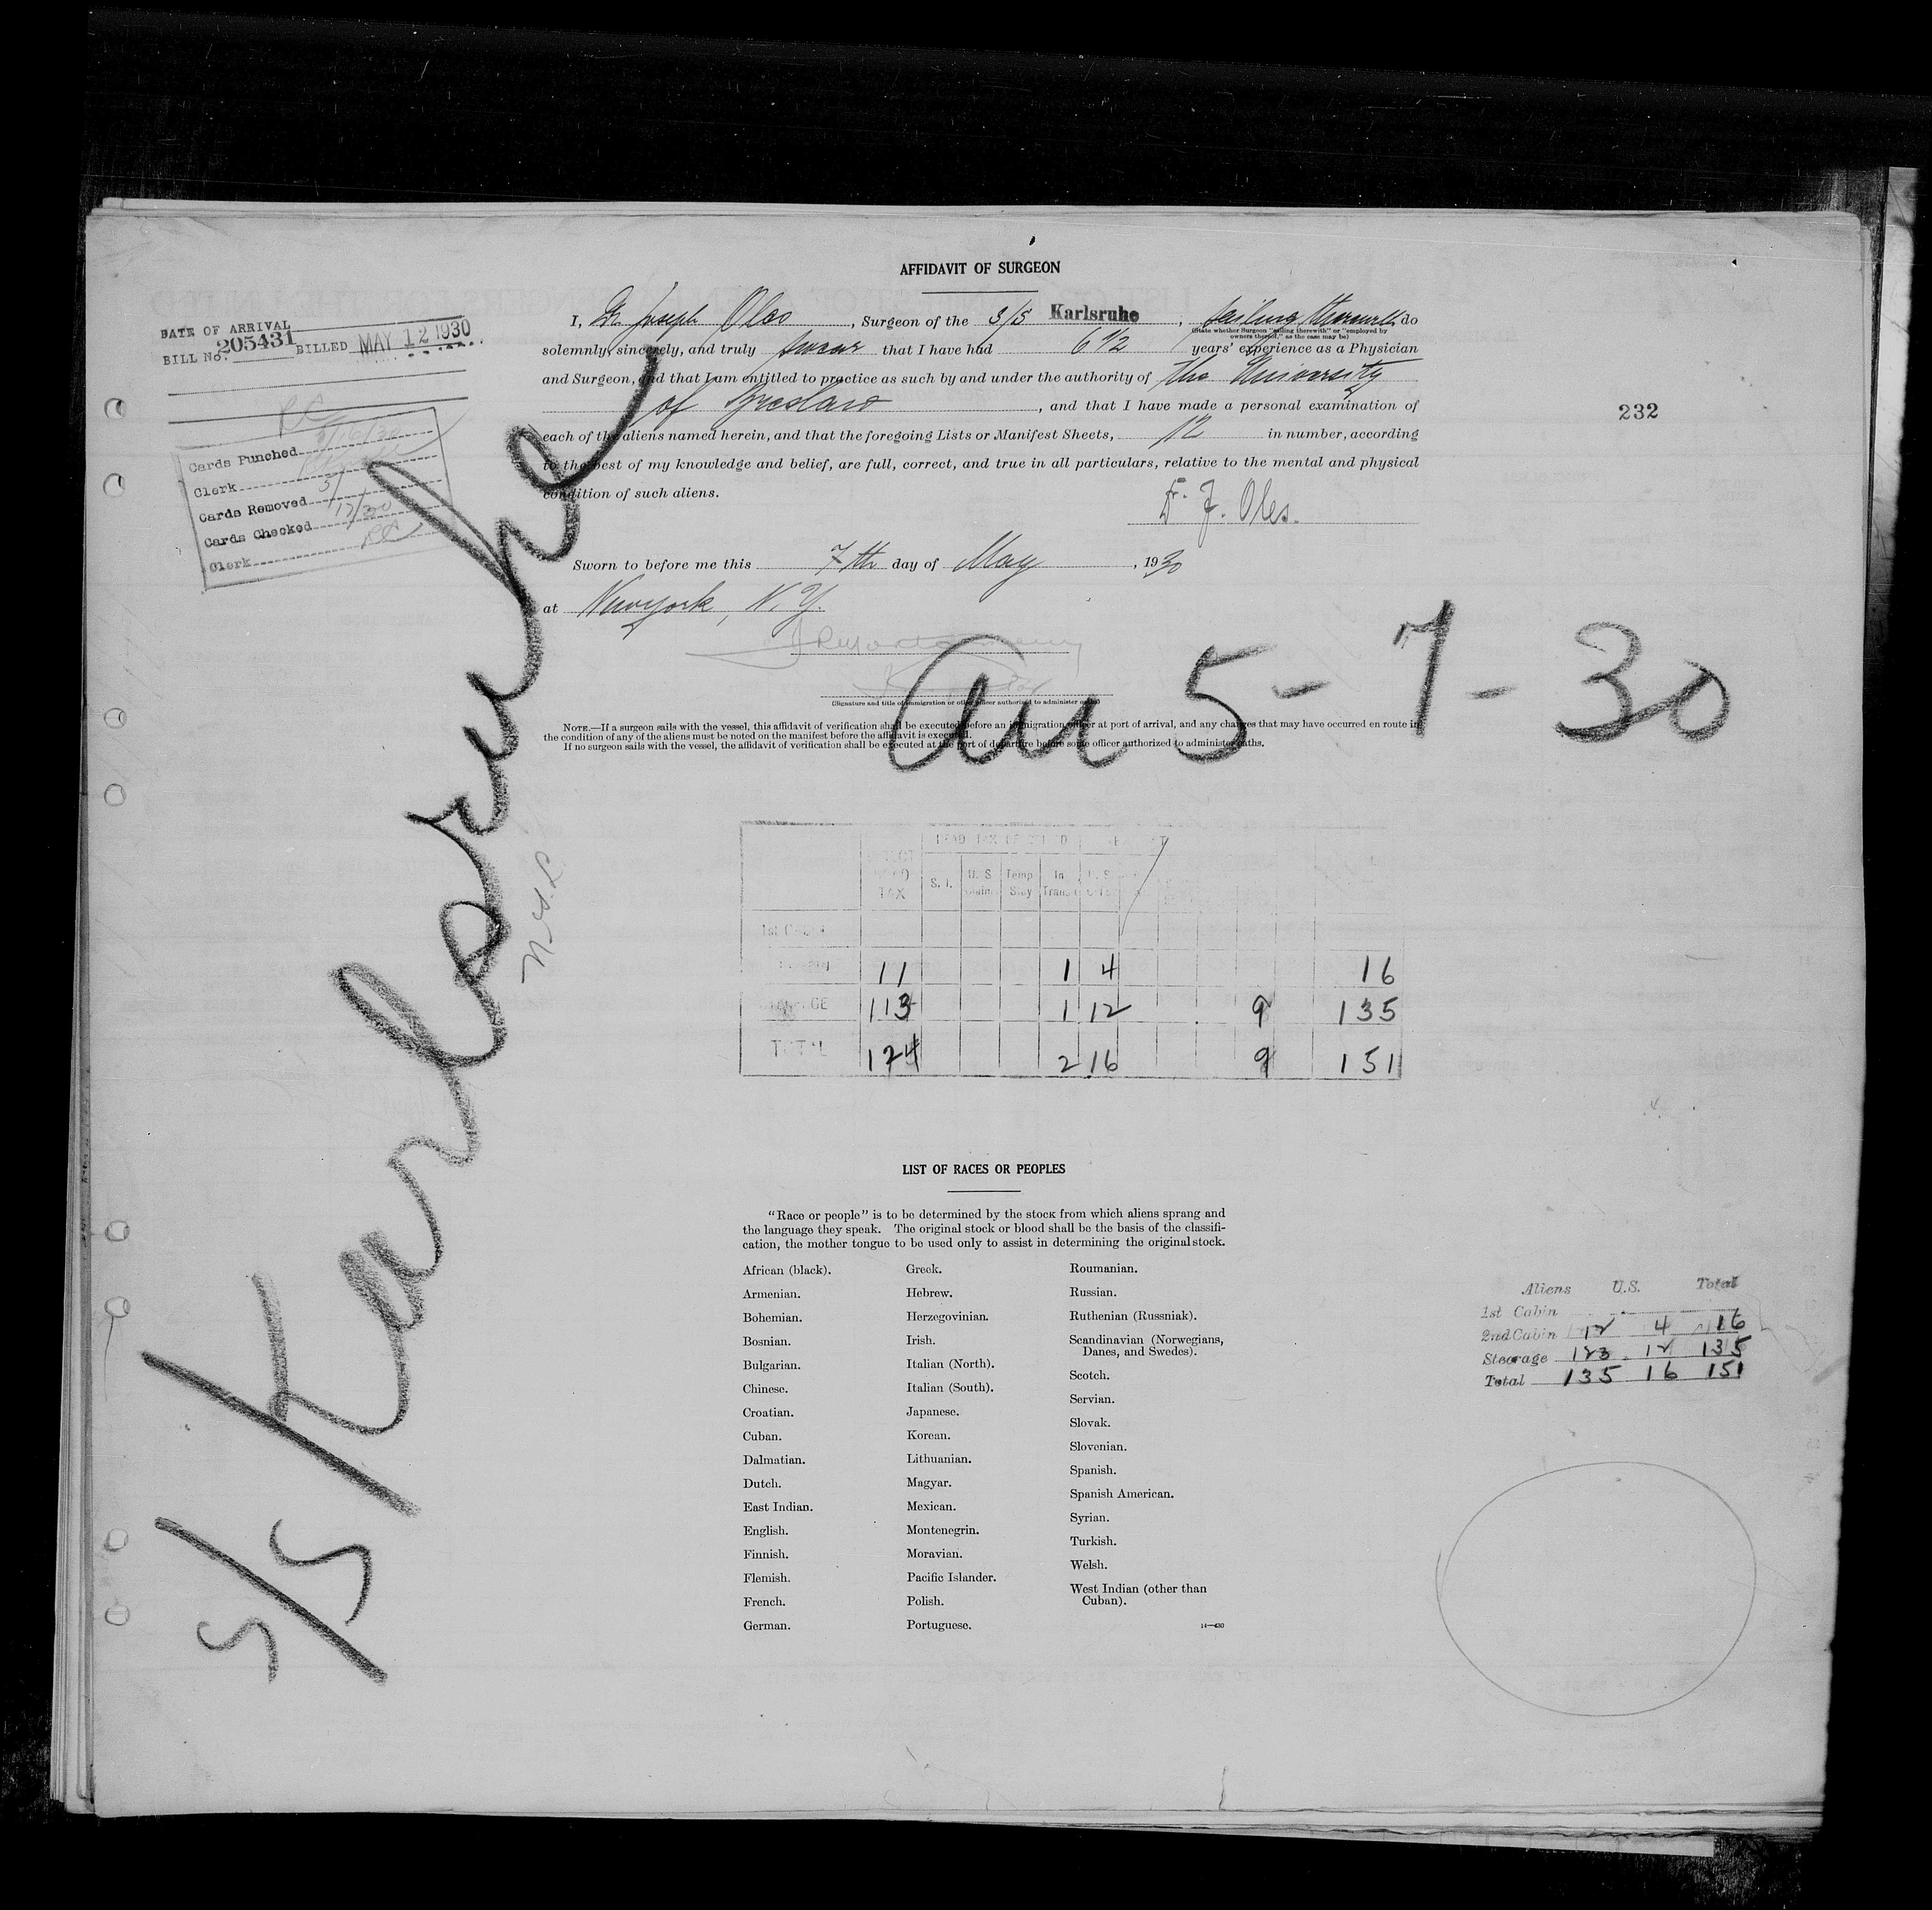 AFFIDAVIT OF SURGEON
I, Dr. Joseph Oles, Surgeon of the S/S Karlsruhe, sailing therewith do
(State whether Surgeon "sailing therewith" or "employed by
owners thereof," as the case may be)
solemnly, sincerely, and truly swear that I have had 6 1/2 years' experience as a Physician
and Surgeon, and that I am entitled to practice as such by and under the authority of the University
of Breslau, and that I have made a personal examination of
each of the aliens named herein, and that the foregoing Lists or Manifest Sheets, 12 in number, according
to the best of my knowledge and belief, are full, correct, and true in all particulars, relative to the mental and physical
condition of such aliens.
Dr. J. Oles.
Sworn to before me this 7th day of May, 1930
at New york, N.Y.
(Signature and title of immigration or other officer authorized to administer oaths)
NOTE.—If a surgeon sails with the vessel, this affidavit of verification shall be executed before an immigration officer at port of arrival, and any changes that may have occurred en route in
the condition of any of the aliens must be noted on the manifest before the affidavit is executed.
If no surgeon sails with the vessel, the affidavit of verification shall be executed at the port of departure before some officer authorized to administer oaths.
DATE OF ARRIVAL
BILL No. 205431 BILLED MAY 12 1930
Cards Punched
Clerk
Cards Removed
Cards Checked 17/30
Clerk
232
S/S Karlsruhe
5-7-30
TAX
S. I. U. S Temp Stay In Trans
11 1 4 16
113 1 12 9 135
TOTAL 124 2 16 9 151
LIST OF RACES OR PEOPLES
"Race or people" is to be determined by the stock from which aliens sprang and
the language they speak. The original stock or blood shall be the basis of the classifi-
cation, the mother tongue to be used only to assist in determining the original stock.
African (black).
Armenian.
Bohemian.
Bosnian.
Bulgarian.
Chinese.
Croatian.
Cuban.
Dalmatian.
Dutch.
East Indian.
English.
Finnish.
Flemish.
French.
German.
Greek.
Hebrew.
Herzegovinian.
Irish.
Italian (North).
Italian (South).
Japanese.
Korean.
Lithuanian.
Magyar.
Mexican.
Montenegrin.
Moravian.
Pacific Islander.
Polish.
Portuguese.
Roumanian.
Russian.
Ruthenian (Russniak).
Scandinavian (Norwegians,
Danes, and Swedes).
Scotch.
Servian.
Slovak.
Slovenian.
Spanish.
Spanish American.
Syrian.
Turkish.
Welsh.
West Indian (other than
Cuban).
14—430
Aliens U.S. Total
1st Cabin
2nd Cabin 12 4 16
Steerage 123 12 135
Total 135 16 151